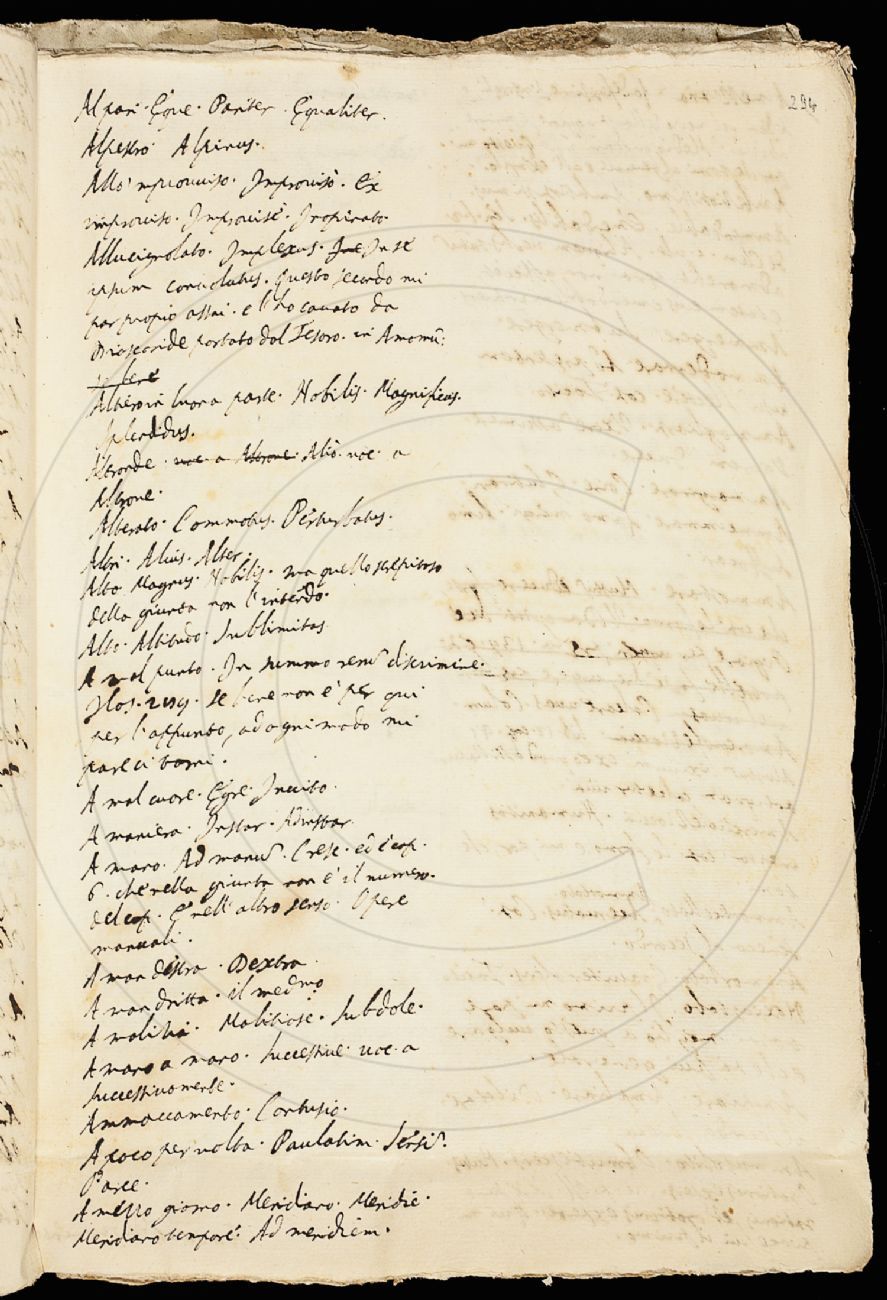 294
Al pari. Eque. Pariter. Equaliter.
Alpestro Alpinus.
All'improuuiso. Improuiso. Ex
improuiso. Improuise. Inopinato.
Allucignolato. Implexus. In se
ipsum conuolutus. questo secondo mi
par propio assai. e l'ho cauato da
Dioscoride portato dal Tesoro. in Amomũ.
Altiero in buona parte. Nobilis. Magnificus.
Splendidus.
Altronde. uoc. a Altrone. Aliò. uoc. a
Altrone.
Alterato. Commotus. Perturbatus.
Altri. Alius. Alter.
Alto Magnus. Nobilis. ma quello strepitoso
della giunta non l'intendo.
Alto. Altitudo. Sublimitas.
A mal punto. In summo rerũ discrimine.
se bene non è per qui
per l'appunto, ad ogni modo mi
pare ci torni.
A mal cuore. Egre. Inuito.
A maniera. Instar. Adinstar.
A mano. Ad manũ. Cresc. ed è cap.
6. che nella giunta non è il numero.
del cap. E nell'altro senso. Opere
manuali.
A man destra. Dextra.
A man dritta. il medmo
A malizia. Malitiose. Subdole.
A mano a mano. Successiue. uoc. a
Successiuamente.
Ammaccamento. Contusio.
A poco per uolta. Paulatim. Sensĩ.
Parce.
A mezzo giorno. Meridiano. Meridie.
Meridiano tempore. Ad meridiem.